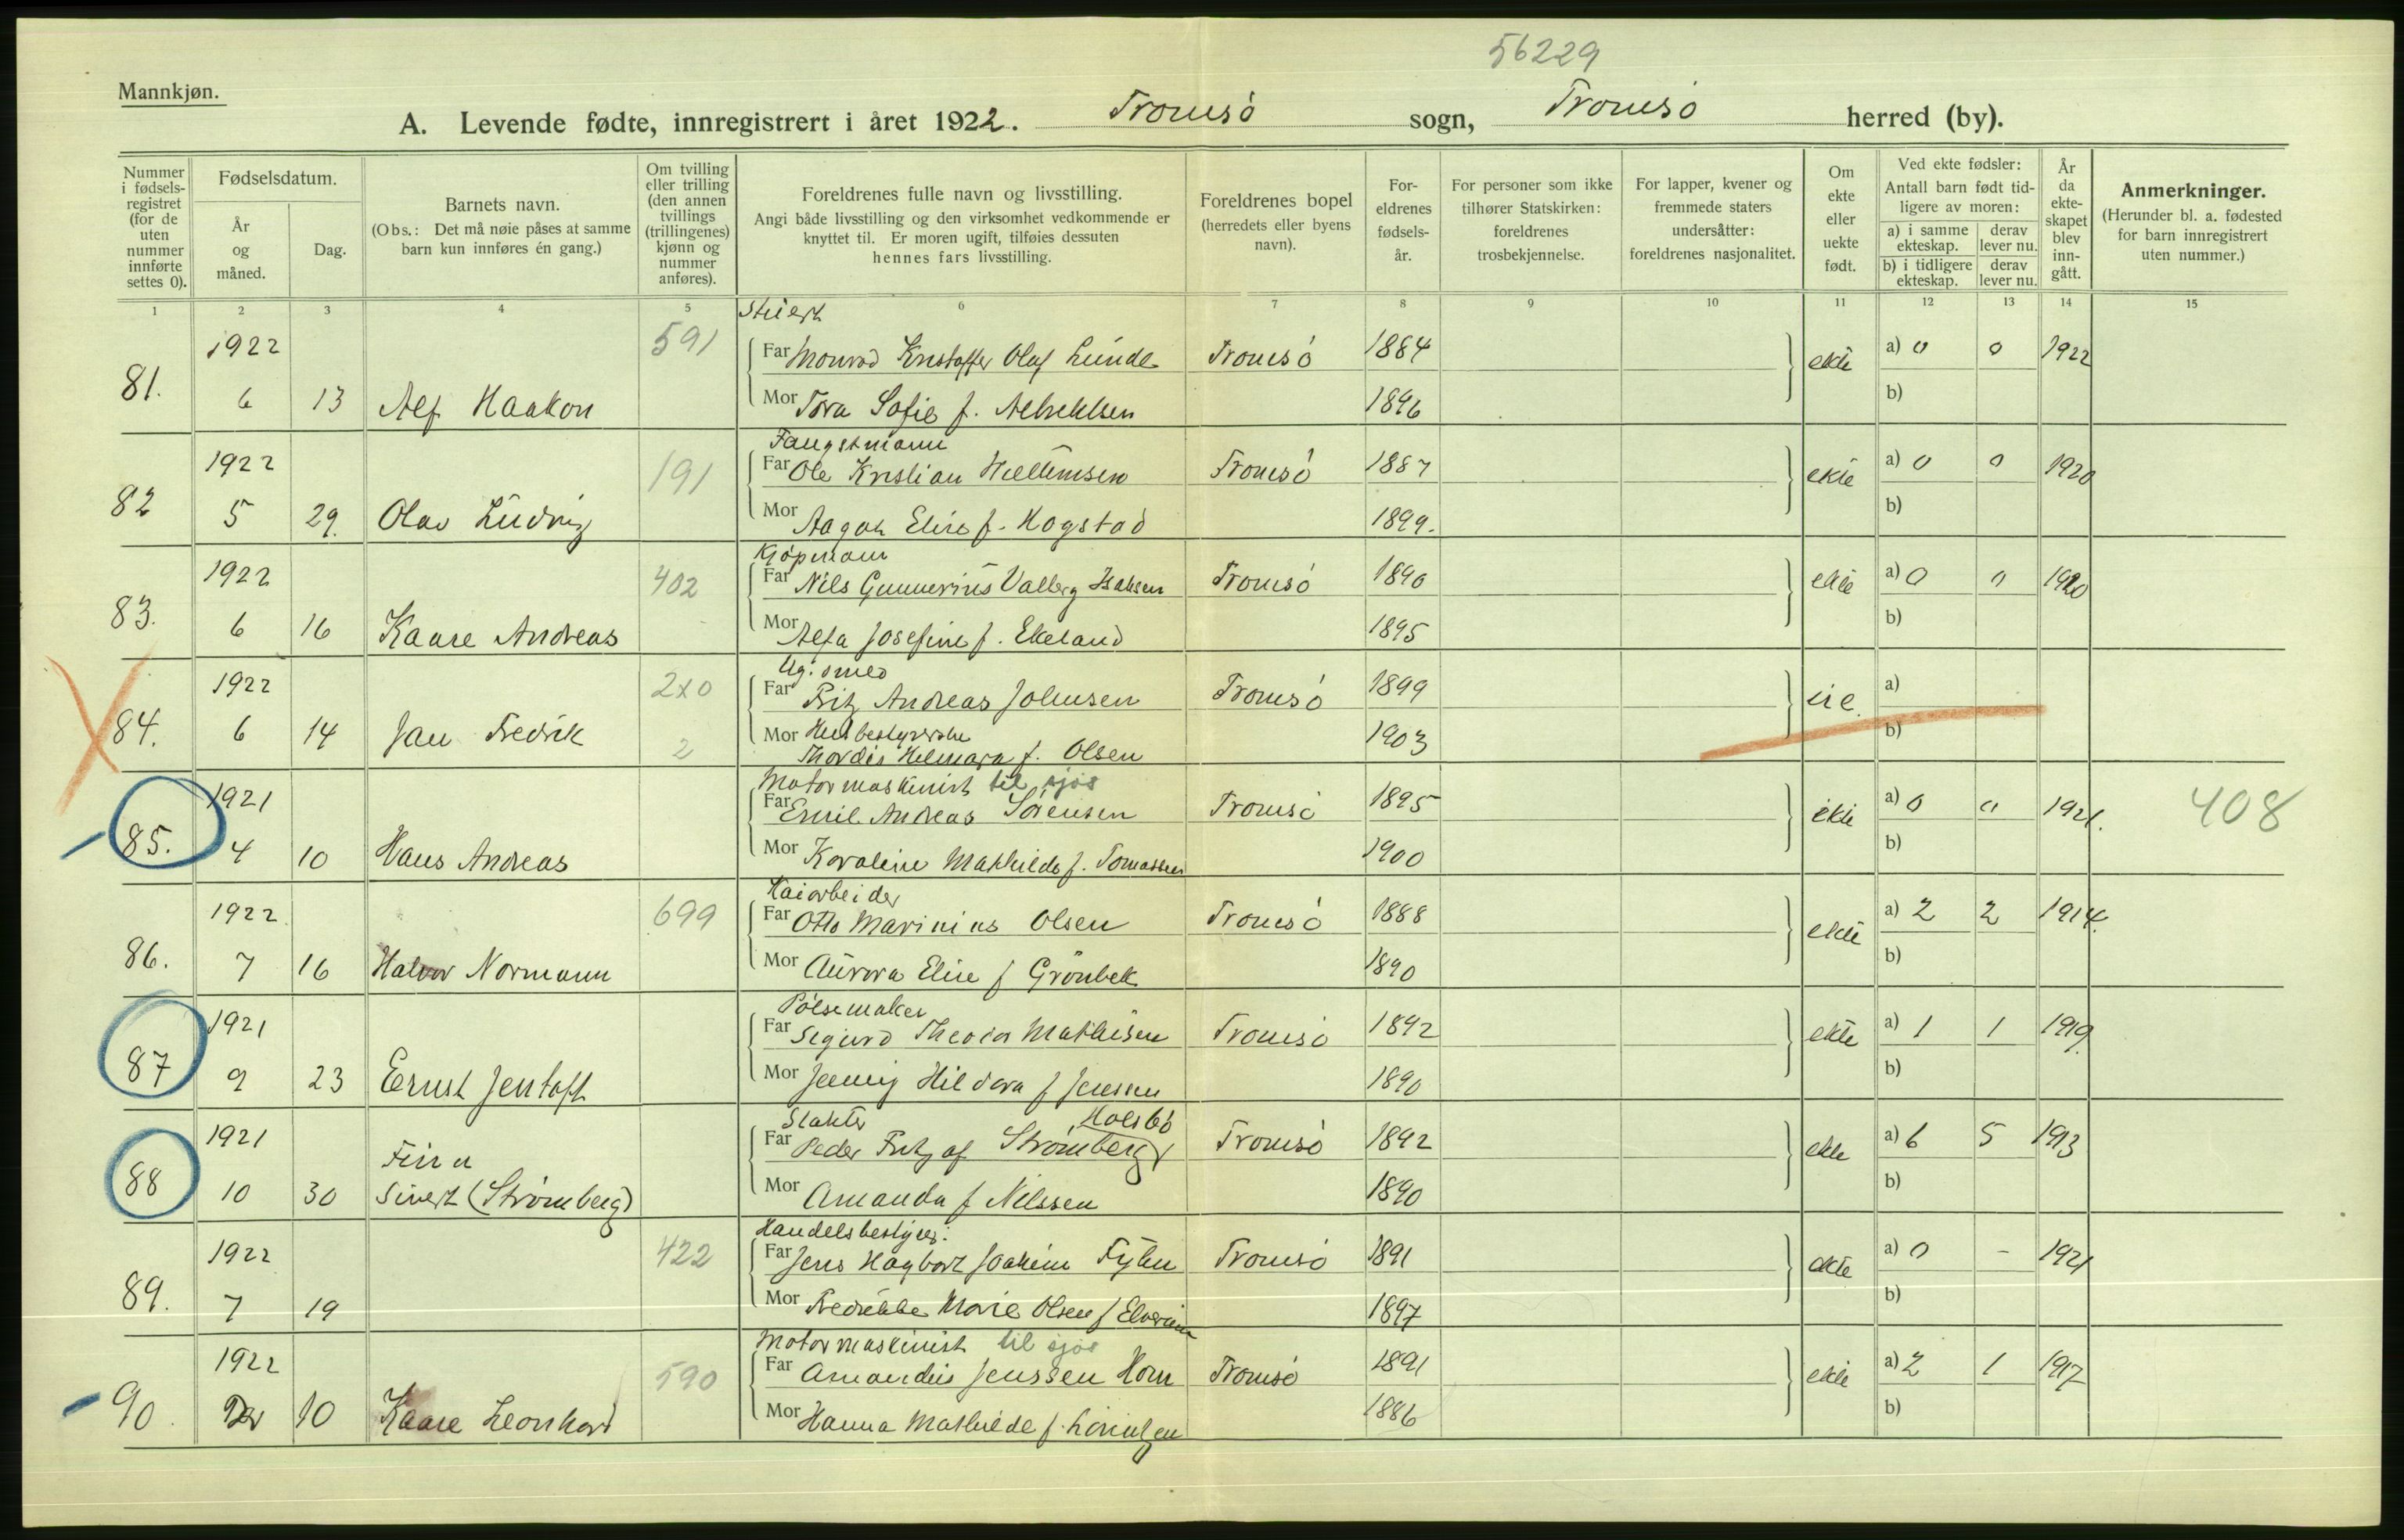 56229
Mannkjøn.
A. Levende fødte, innregistrert i året 1922. Tromsø sogn, Tromsø herred (by).
Nummer i fødselsregistret (for de uten nummer innførte settes 0).
Fødselsdatum.
År og måned.
Dag.
Barnets navn.
(Obs.: Det må nøie påses at samme barn kun innføres én gang.)
Om tvilling eller trilling (den annen tvillings (trillingenes) kjønn og nummer anføres).
Foreldrenes fulle navn og livsstilling.
Angi både livsstilling og den virksomhet vedkommende er knyttet til. Er moren ugift, tilføies dessuten hennes fars livsstilling.
Foreldrenes bopel (herredets eller byens navn).
Foreldrenes fødselsår.
For personer som ikke tilhører Statskirken: foreldrenes trosbekjennelse.
For lapper, kvener og fremmede staters undersåtter: foreldrenes nasjonalitet.
Om ekte eller uekte født.
Ved ekte fødsler:
Antall barn født tidligere av moren:
a) i samme ekteskap. derav lever nu.
b) i tidligere ekteskap. derav lever nu.
År da ekteskapet blev inngått.
Anmerkninger.
(Herunder bl. a. fødested for barn innregistrert uten nummer.)
1 2 3 4 5 6 7 8 9 10 11 12 13 14 15
1922 591
Far Monrad Kristoffer Olaf Lunde Tromsø 1884 ekte a) 0 0 1922
81. 6 13 Alf Haakon Mor Tora Sofie f. 1896 b)
Fangstmann
1922 191 Far Ole Kristian Tromsø 1887 ekte a) 0 0 1920
82 5 29. Olav Ludvig Mor Aagot Elise f. Hogstad 1899. b)
Kjøpmann
1922 402 Far Nils Gunnerius Valberg Isaksen Tromsø 1890 ekte a) 0 0 1920
83. 6 16 Kaare Andreas Mor Alfa Josefine f. Ekeland 1895 b)
Ug. smed
1922 Far Fritz Andreas Johnsen Tromsø 1899 a)
84. 6 14 Jan Fredrik 2 Mor Husbestyrerske 1903 b)
Thordis Helmara f. Olsen
Motormaskinist til sjøs
1921 Far Emil Andreas Sørensen Tromsø 1895 ekte a) 0 0 1921. 408
85. 4 10 Hans Andreas Mor Karoline Mathilde f. Tomassen 1900 b)
Kaiarbeider
1922 699 Far Otto Marinius Olsen Tromsø 1888 ekte a) 2 2 1914.
86. 7 16 Halvor Normann Mor Aurora Elise f Grønbek 1890 b)
Pølsemaker
1921 Far Sigurd Theodor Mathisen Tromsø 1892 ekte a) 1 1 1919.
87 9 23 Ernst Jentoft Mor Jenny Hildora f Jenssen 1890 b)
Slakter Holsbø
1921 Finn Far Peder Fritjof Strømberg Tromsø 1892 ekte a) 6 5 1913
88 10 30 Sivert (Strømberg) Mor Amanda f Nilssen 1890 b)
Handelsbestyrer.
1922 422 Far Jens Hagbart Joakim Fylen Tromsø 1891 ekte a) 0 - 1921
89. 7 19 Mor Fredrikke Marie Olsen f 1897 b)
Motormaskinist til sjøs
1922 590 Far Amandus Jenssen Horn Tromsø 1891 ekte a) 2 1 1917
90. 10 Kaare Leonhard Mor Hanna Mathilde f. Lorentzen 1886 b)